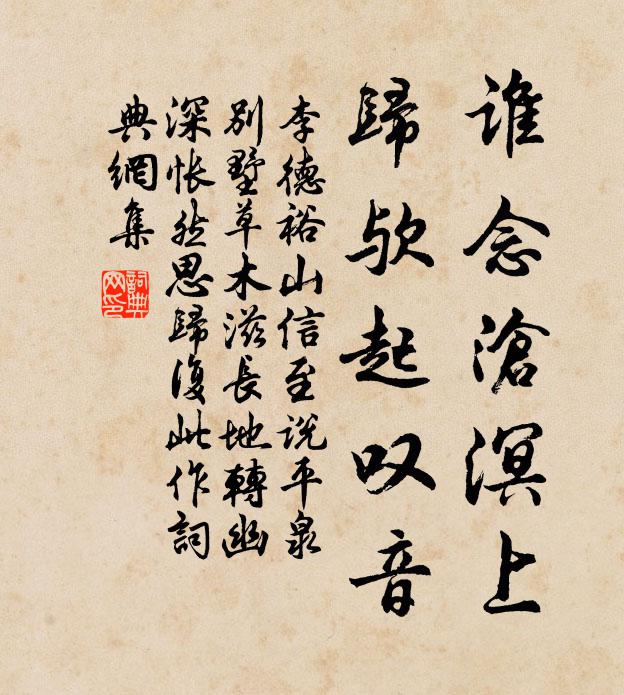 谁念滄溟上
歸欤起叹音
李德裕山信至说平泉
别墅草木滋長地轉幽
深怅然思歸復此作詞
典網集
詞典
网印